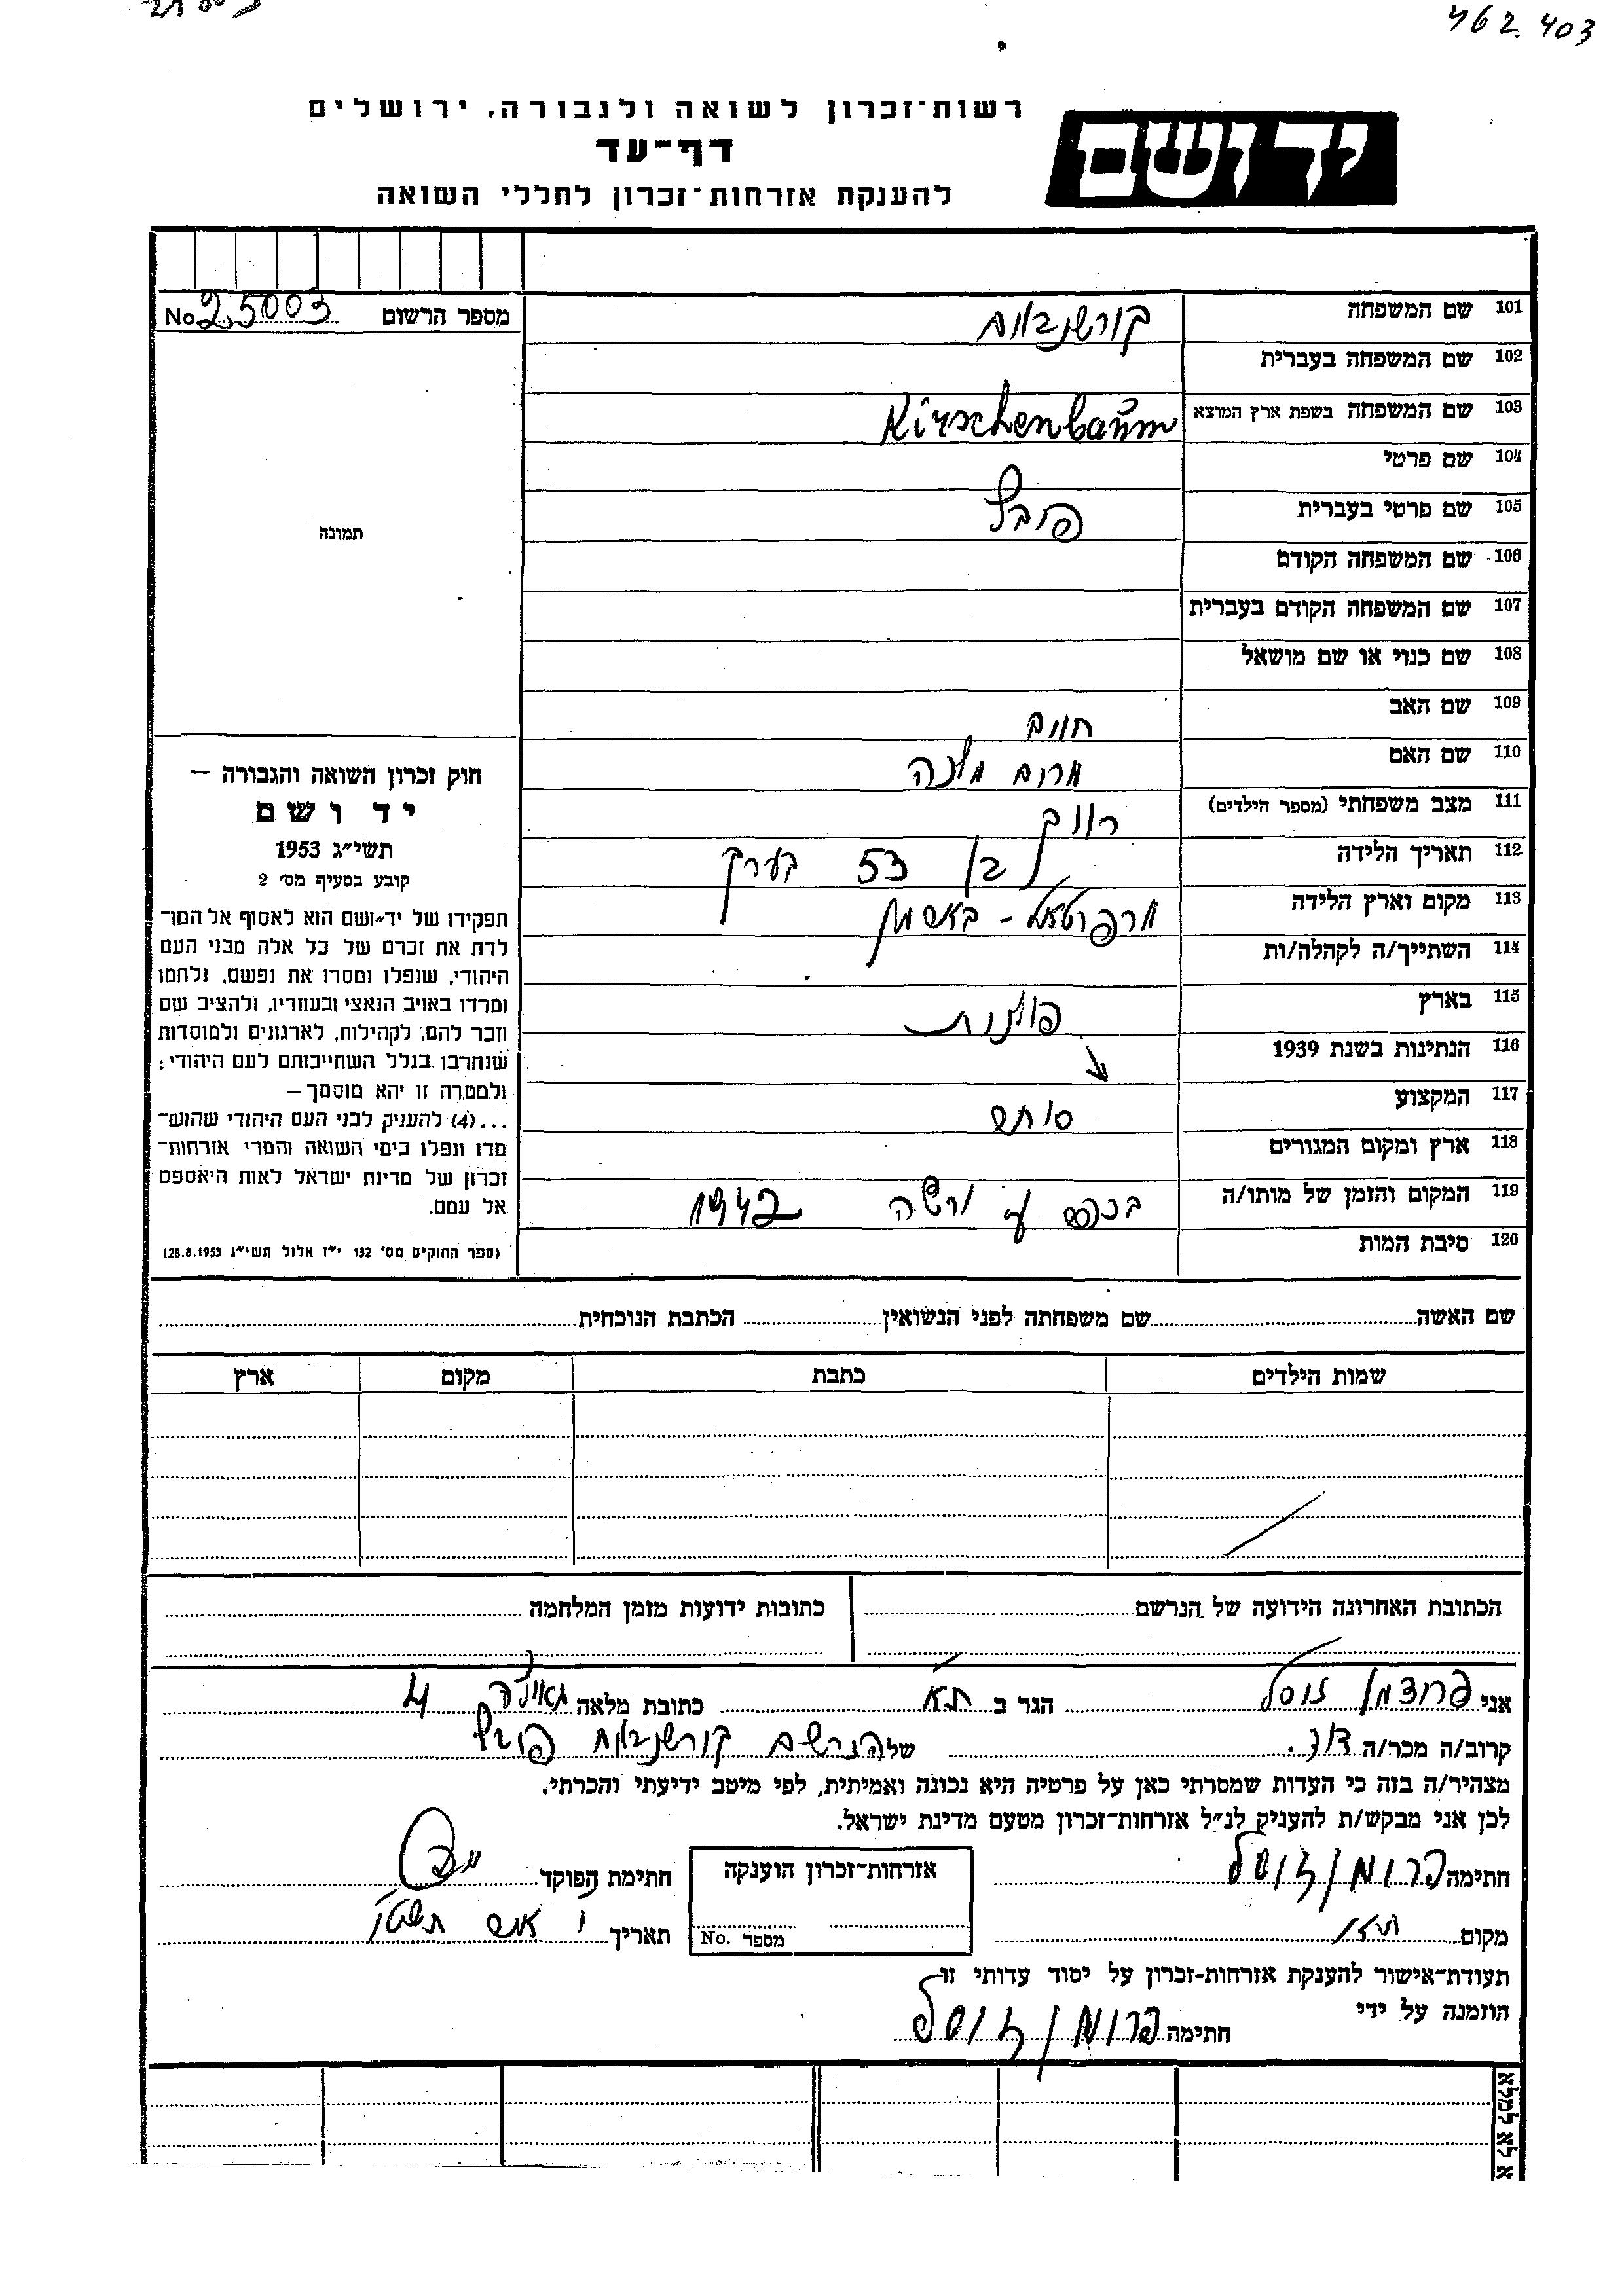 462.403
רשות־זכרון לשואה ולגבורה, ירושלים
דף־עד
להענקת אזרחות־זכרון לחללי השואה
יד ושם
מספר הרשום No 25003
תמונה
101 שם המשפחה קורשנבאום
102 שם המשפחה בעברית
103 שם המשפחה בשפת ארץ המוצא Kirschenbaum
104 שם פרטי
105 שם פרטי בעברית
106 שם המשפחה הקודם
107 שם המשפחה הקודם בעברית
108 שם כנוי או שם מושאל
109 שם האב חיים
110 שם האם מרים מלכה
111 מצב משפחתי (מספר הילדים) רווק
112 תאריך הלידה בן 53 בערך
113 מקום וארץ הלידה
114 השתייך/ה לקהלה/ות
115 בארץ
116 הנתינות בשנת 1939
117 המקצוע סוחר
118 ארץ ומקום המגורים
119 המקום והזמן של מותו/ה ורשה 1942
120 סיבת המות
חוק זכרון השואה והגבורה –
יד ושם
תשי״ג 1953
קובע בסעיף מס׳ 2
תפקידו של יד־ושם הוא לאסוף אל המו־
לדת את זכרם של כל אלה מבני העם
היהודי, שנפלו ומסרו את נפשם, נלחמו
ומרדו באויב הנאצי ובעוזריו, ולהציב שם
וזכר להם, לקהילות, לארגונים ולמוסדות
שנחרבו בגלל השתייכותם לעם היהודי;
ולמטרה זו יהא מוסמך –
...(4) להענק לבני העם היהודי שהוש־
מדו ונפלו בימי השואה והמרי אזרחות־
זכרון של מדינת ישראל לאות היאספם
אל עמם.
(ספר החוקים מס׳ 132 י״ז אלול תשי״ג 28.8.1953)
שם האשה שם משפחתה לפני הנשואין הכתבת הנוכחית
שמות הילדים כתבת מקום ארץ
הכתובת האחרונה הידועה של הנרשם כתובות ידועות מזמן המלחמה
אני פרומן זוסל הגר ב ת״א כתובת מלאה גאולה
קרוב/ה מכר/ה דוד. של הנרשם קורשנבאום
מצהיר/ה בזה כי העדות שמסרתי כאן על פרטיה היא נכונה ואמיתית, לפי מיטב ידיעתי והכרתי.
לכן אני מבקש/ת להעניק לנ״ל אזרחות־זכרון מטעם מדינת ישראל.
חתימה פרומן זוסל אזרחות־זכרון הוענקה חתימת הפוקד
מקום ת״א מספר No. תאריך
תעודת־אישור להענקת אזרחות־זכרון על יסוד עדותי זו
הוזמנה על ידי
חתימה פרומן זוסל
נא לא למלא